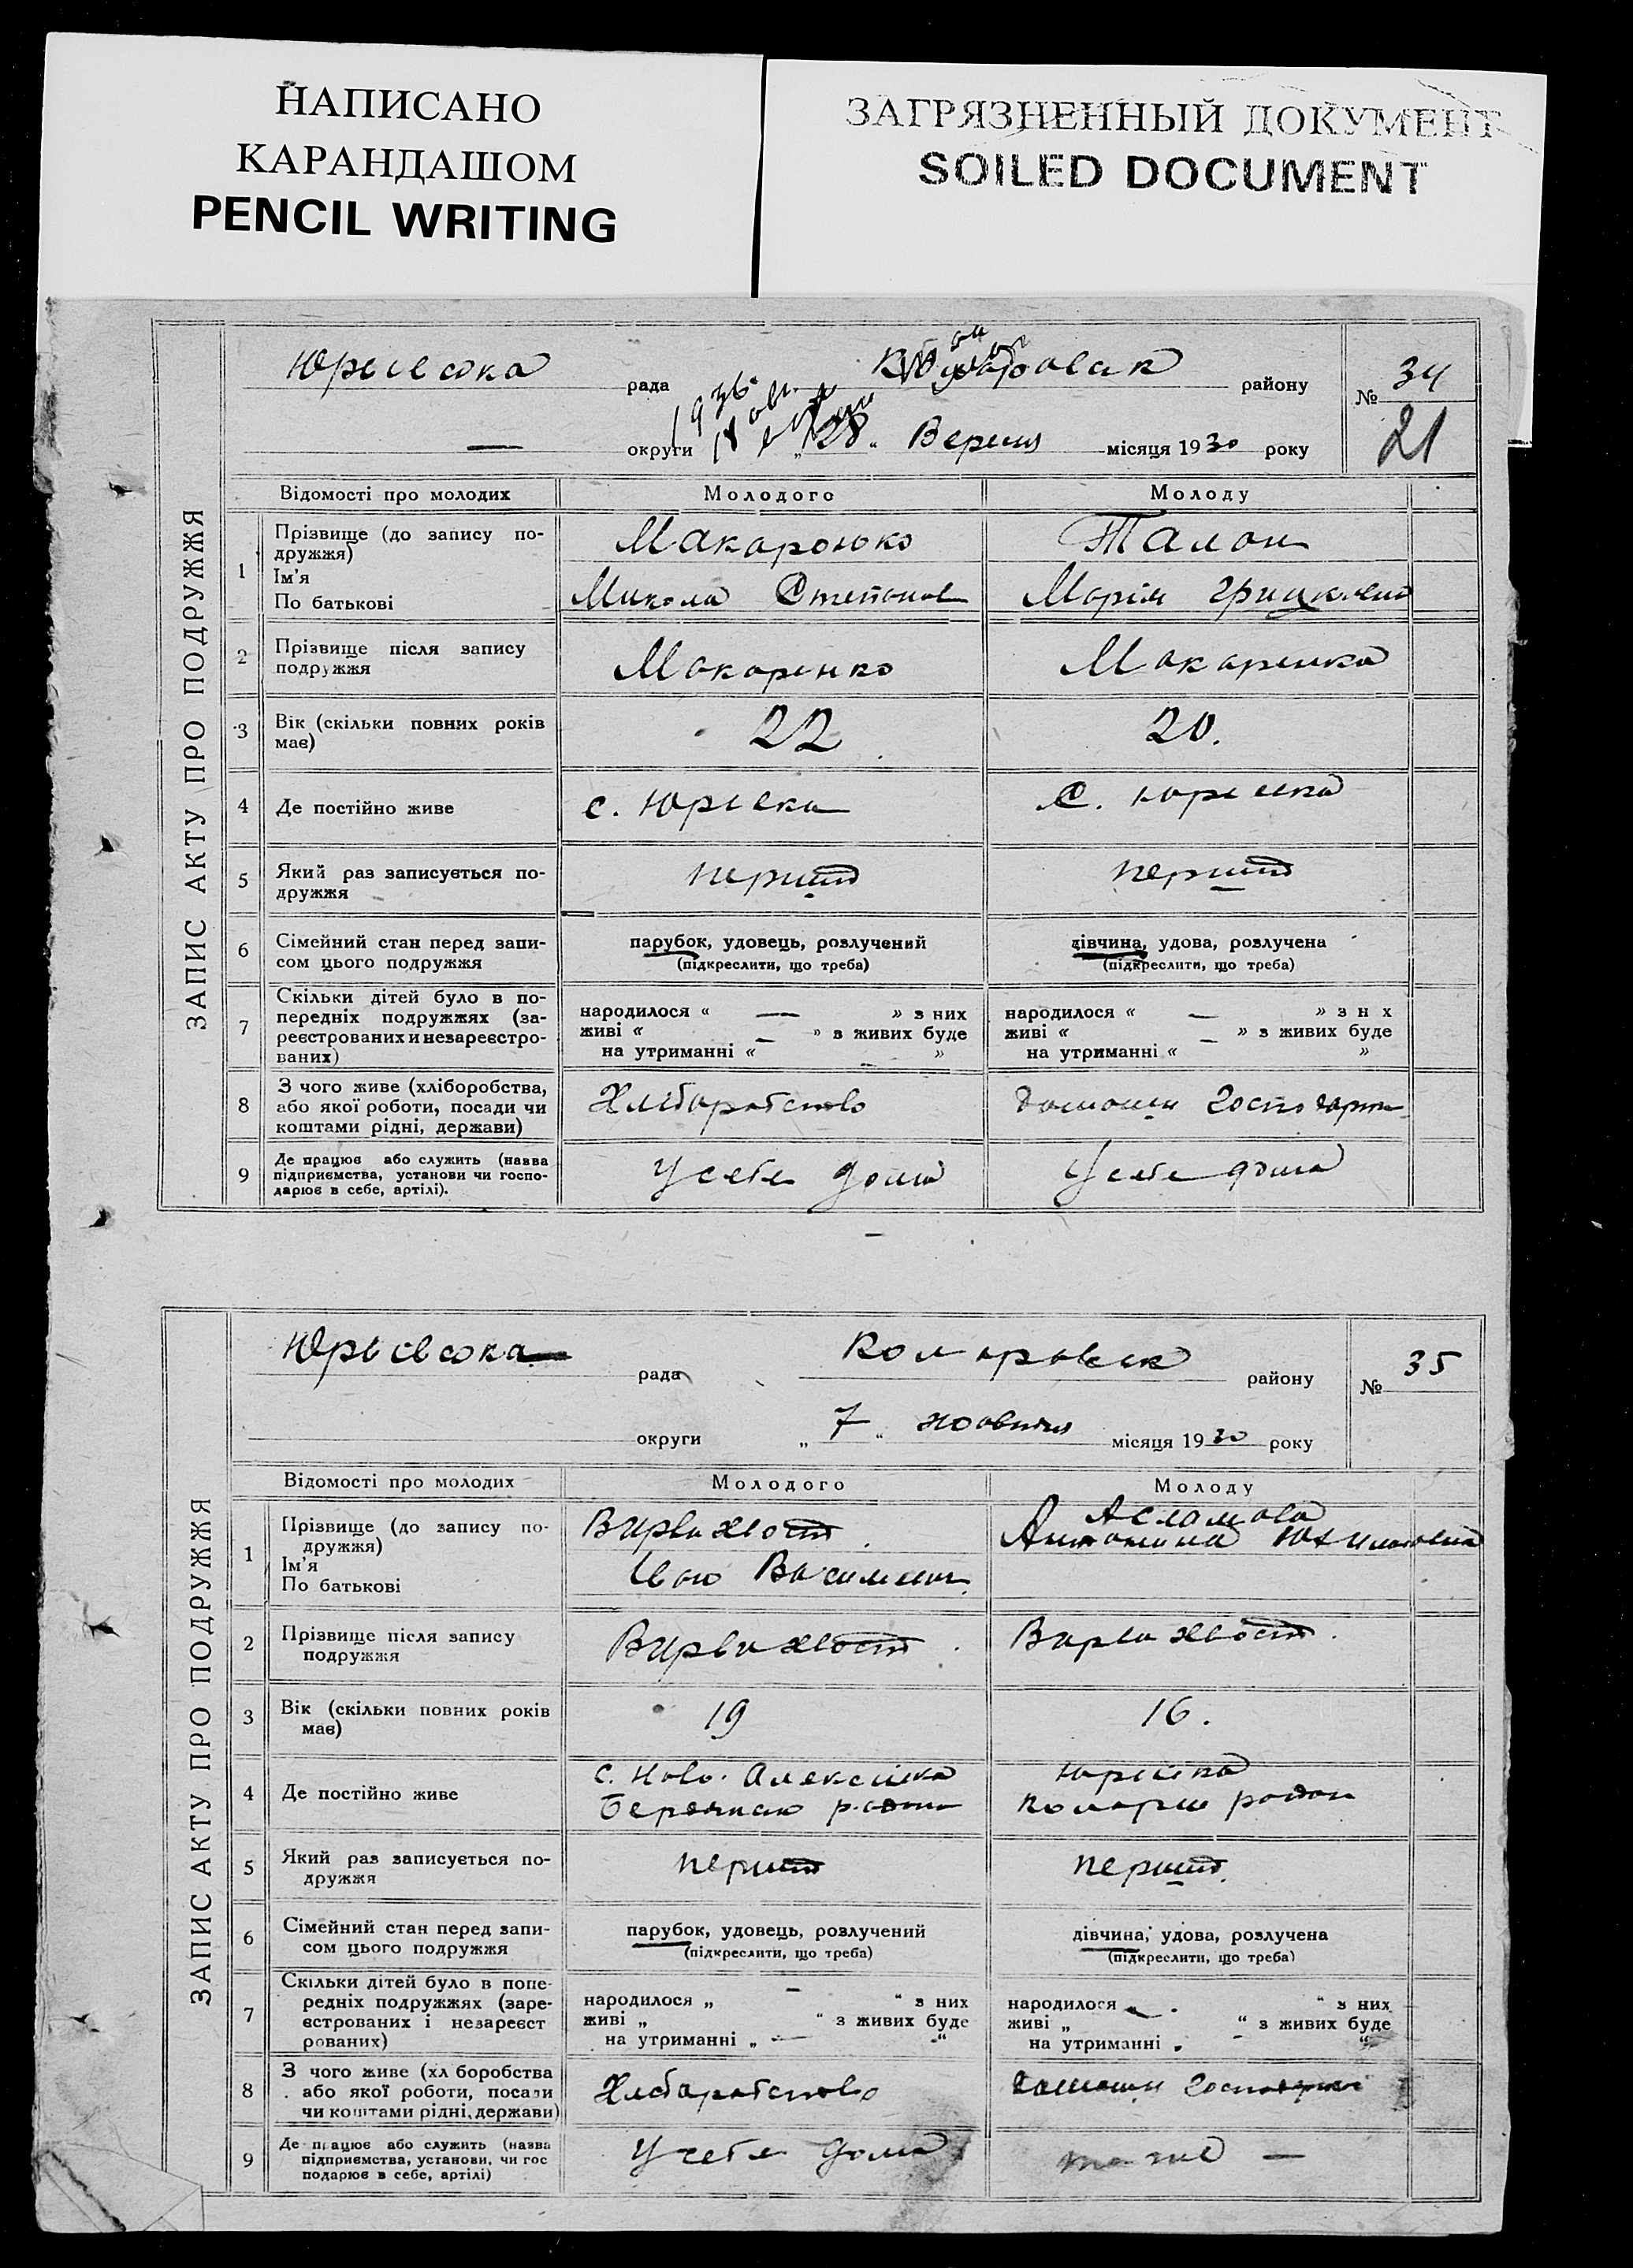 НАПИСАНО
КАРАНДАШОМ
PENCIL WRITING
ЗАГРЯЗНЕННЫЙ ДОКУМЕНТ
SOILED DOCUMENT
ЗАПИС АКТУ ПРО ПОДРУЖЖЯ
рада району № 34
— округи „28“ Вересня місяця 1930 року 21
Відомості про молодих Молодого Молоду
1 Прізвище (до запису по-
дружжя)
Ім'я
По батькові
Макаронько Талан
Микола Степанов Марія
2 Прізвище після запису
подружжя
Макаренко Макаренко
3 Вік (скільки повних років
має)
22 20.
4 Де постійно живе с. Юрiевка с. Юрiевка
5 Який раз записується по-
дружжя
перший перший
6 Сімейний стан перед запи-
сом цього подружжя
парубок, удовець, розлучений дівчина, удова, розлучена
(підкреслити, що треба) (підкреслити, що треба)
7 Скільки дітей було в по-
передніх подружжях (за-
реєстрованих и незареєстро-
ваних)
народилося « — » з них народилося « — » з н х
живі « — » з живих буде живі « — » з живих буде
на утриманні « — » на утриманні « »
8 З чого живе (хліборобства,
або якої роботи, посади чи
коштами рідні, держави)
Хлеборобство
9 Де працює або служить (назва
підприємства, установи чи госпо-
дарює в себе, артілі).
У себе дома У себе дома
ЗАПИС АКТУ ПРО ПОДРУЖЖЯ
рада району № 35
округи „7“ жовтня місяця 1930 року
Відомості про молодих Молодого Молоду
1 Прізвище (до запису по-
дружжя)
Ім'я
По батькові
Вирвихвост Асламова
Антонина
Иван
2 Прізвище після запису
подружжя
Вирвихвост. Вирвихвост.
3 Вік (скільки повних років
має)
19 16.
4 Де постійно живе с. Ново-Алексiевка Юрiевка
5 Який раз записується по-
дружжя
перший перший
6 Сімейний стан перед запи-
сом цього подружжя
парубок, удовець, розлучений дівчина, удова, розлучена
(підкреслити, що треба) (підкреслити, що треба)
7 Скільки дітей було в попе-
редніх подружжях (заре-
єстрованих і незареєст
рованих)
народилося „ — “ з них народилося „ — “ з них
живі „ “ з живих буде живі „ “ з живих буде
на утриманні „ — “ на утриманні „ “
8 З чого живе (хл боробства
або якої роботи, посади
чи коштами рідні, держави)
Хлеборобство
9 Де працює або служить (назва
підприємства, установи, чи гос
подарює в себе, артілі)
У себе дома —